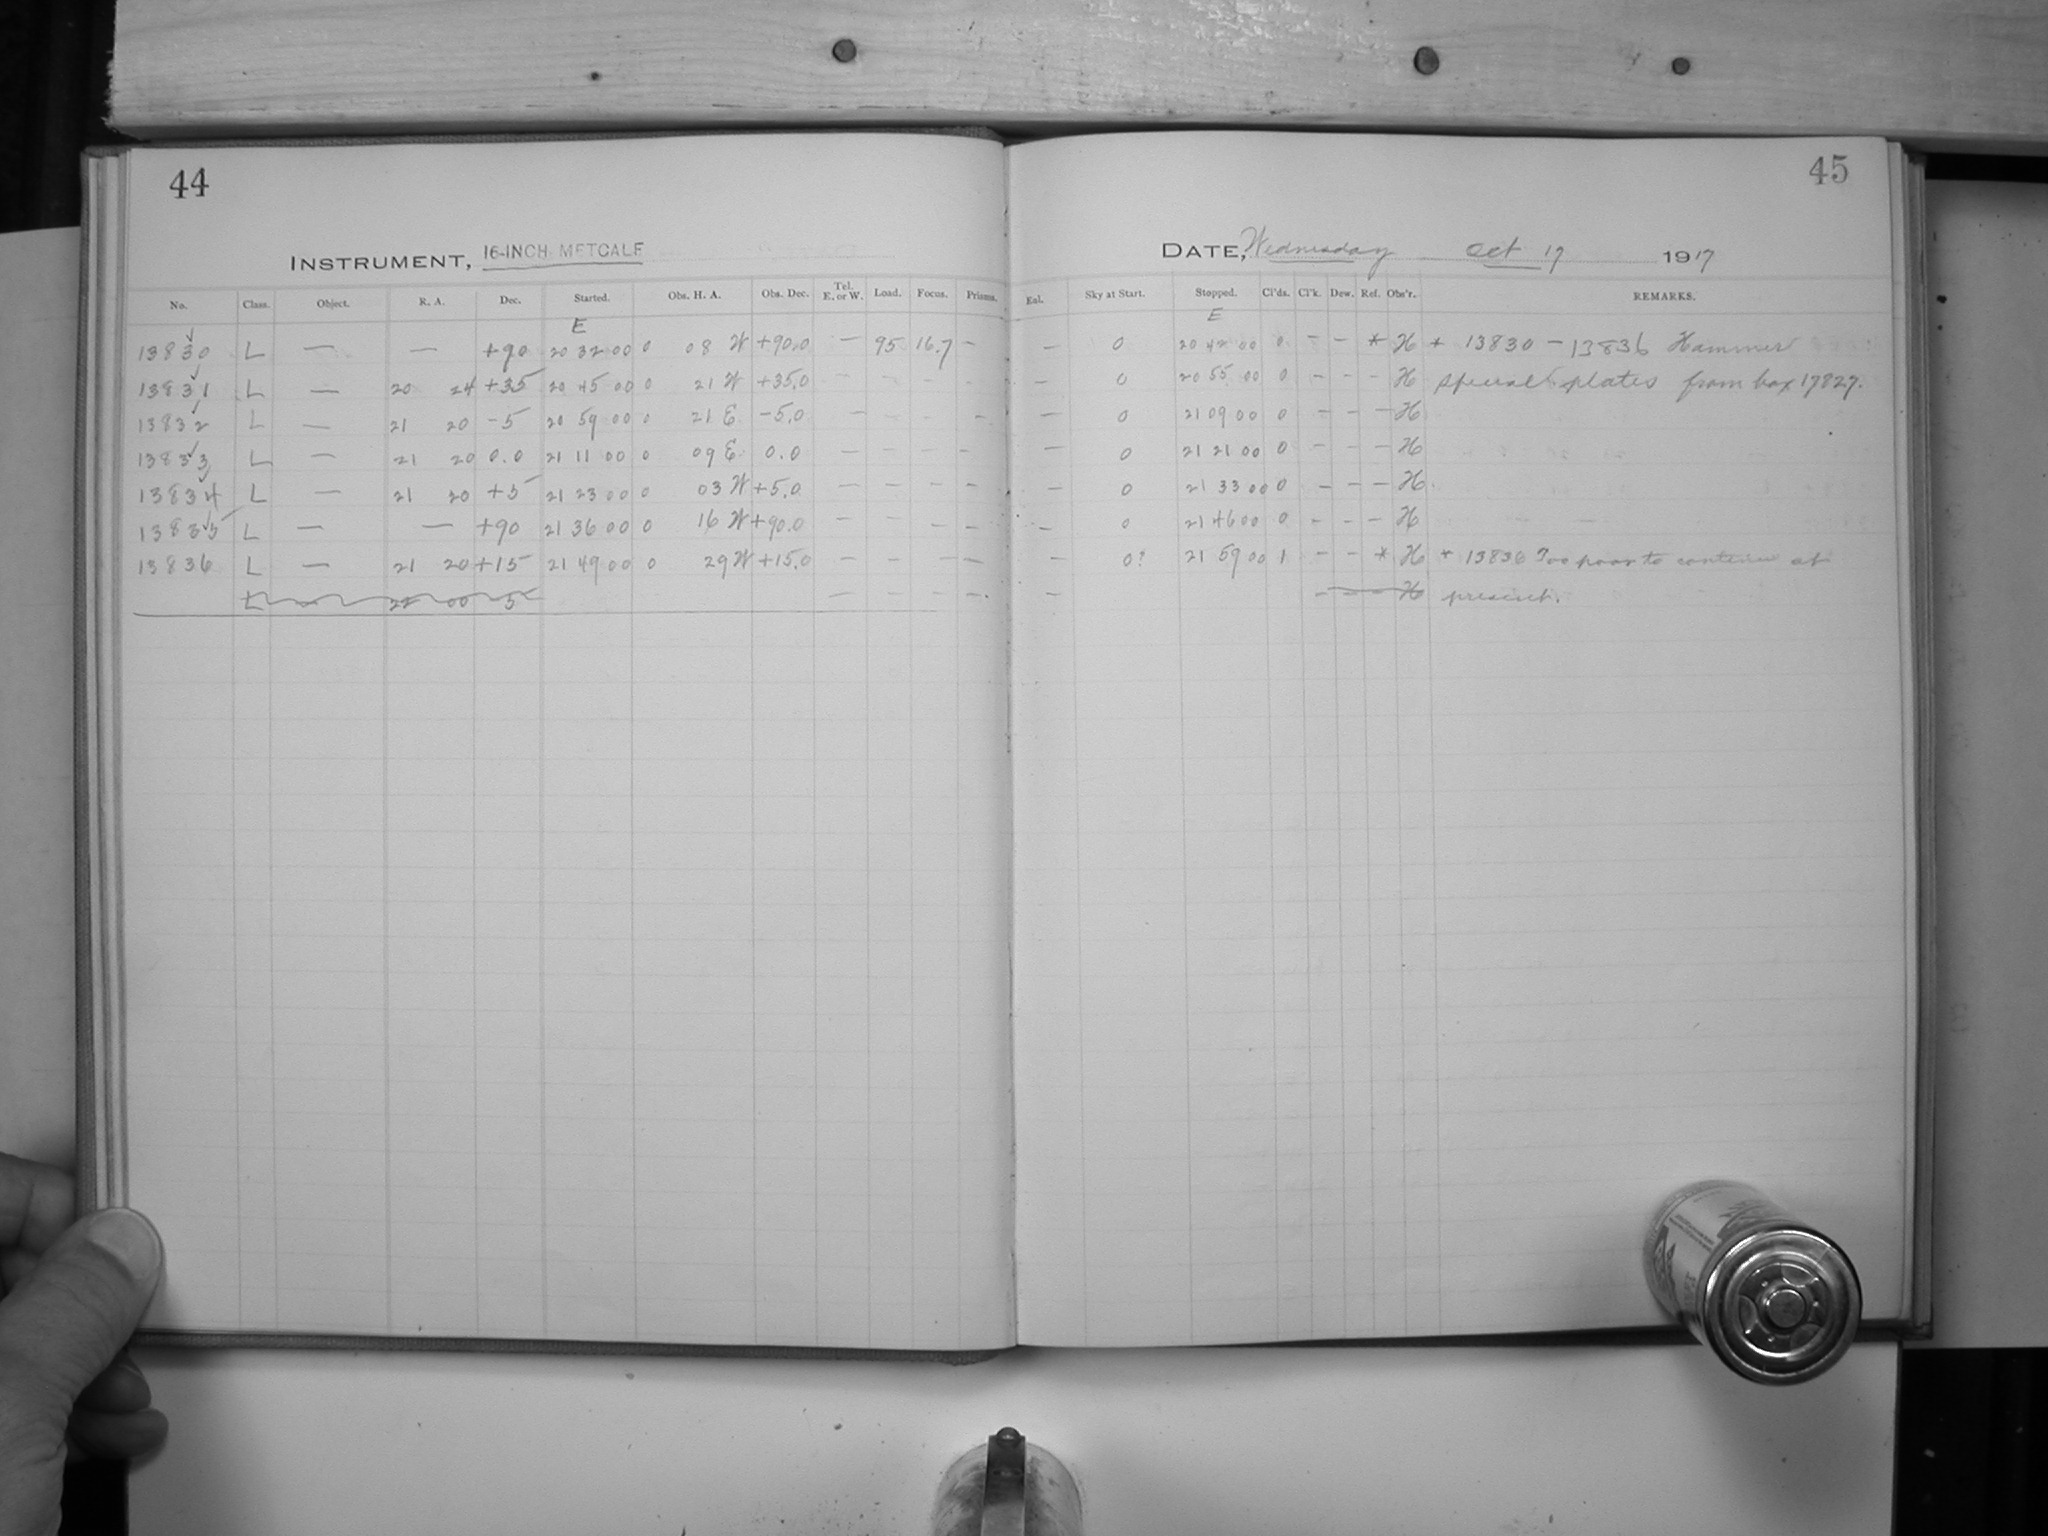 44
45
INSTRUMENT, 16-INCH METCALF
DATE, Wednesday Oct 17 1917
No. Class. Object. R. A. Dec. Started. Obs. H. A. Obs. Dec. Tel. E. or W. Load. Focus. Prisms. Eal. Sky at Start. Stopped. Cl'ds. Cl'k. Dew. Ref. Obs'r. REMARKS.
E E
13830 L — — +90 20 32 00 0 08 W +90.0 — 95 16.7 — — 0 20 42 00 0 - - * H * 13830 - 13836 Hammer
13831 L — 20 24 +35 20 45 00 0 21 W +35.0 - - - - — 0 20 55 00 0 - - - H special plates from box 17827.
13832 L — 21 20 -5 20 59 00 0 21 E -5.0 - - - - — 0 21 09 00 0 - - - H
13833 L — 21 20 0.0 21 11 00 0 09 E 0.0 - - - - — 0 21 21 00 0 - - - H
13834 L — 21 20 +5 21 23 00 0 03 W +5.0 - - - - — 0 21 33 00 0 - - - H
13835 L — — +90 21 36 00 0 16 W +90.0 - - - - — 0 21 46 00 0 - - - H
13836 L — 21 20 +15 21 49 00 0 29 W +15.0 - - - - — 0? 21 59 00 1 - - * H * 13836 Too poor to continue at
L — 22 00 5 - - - - — - - - H present.